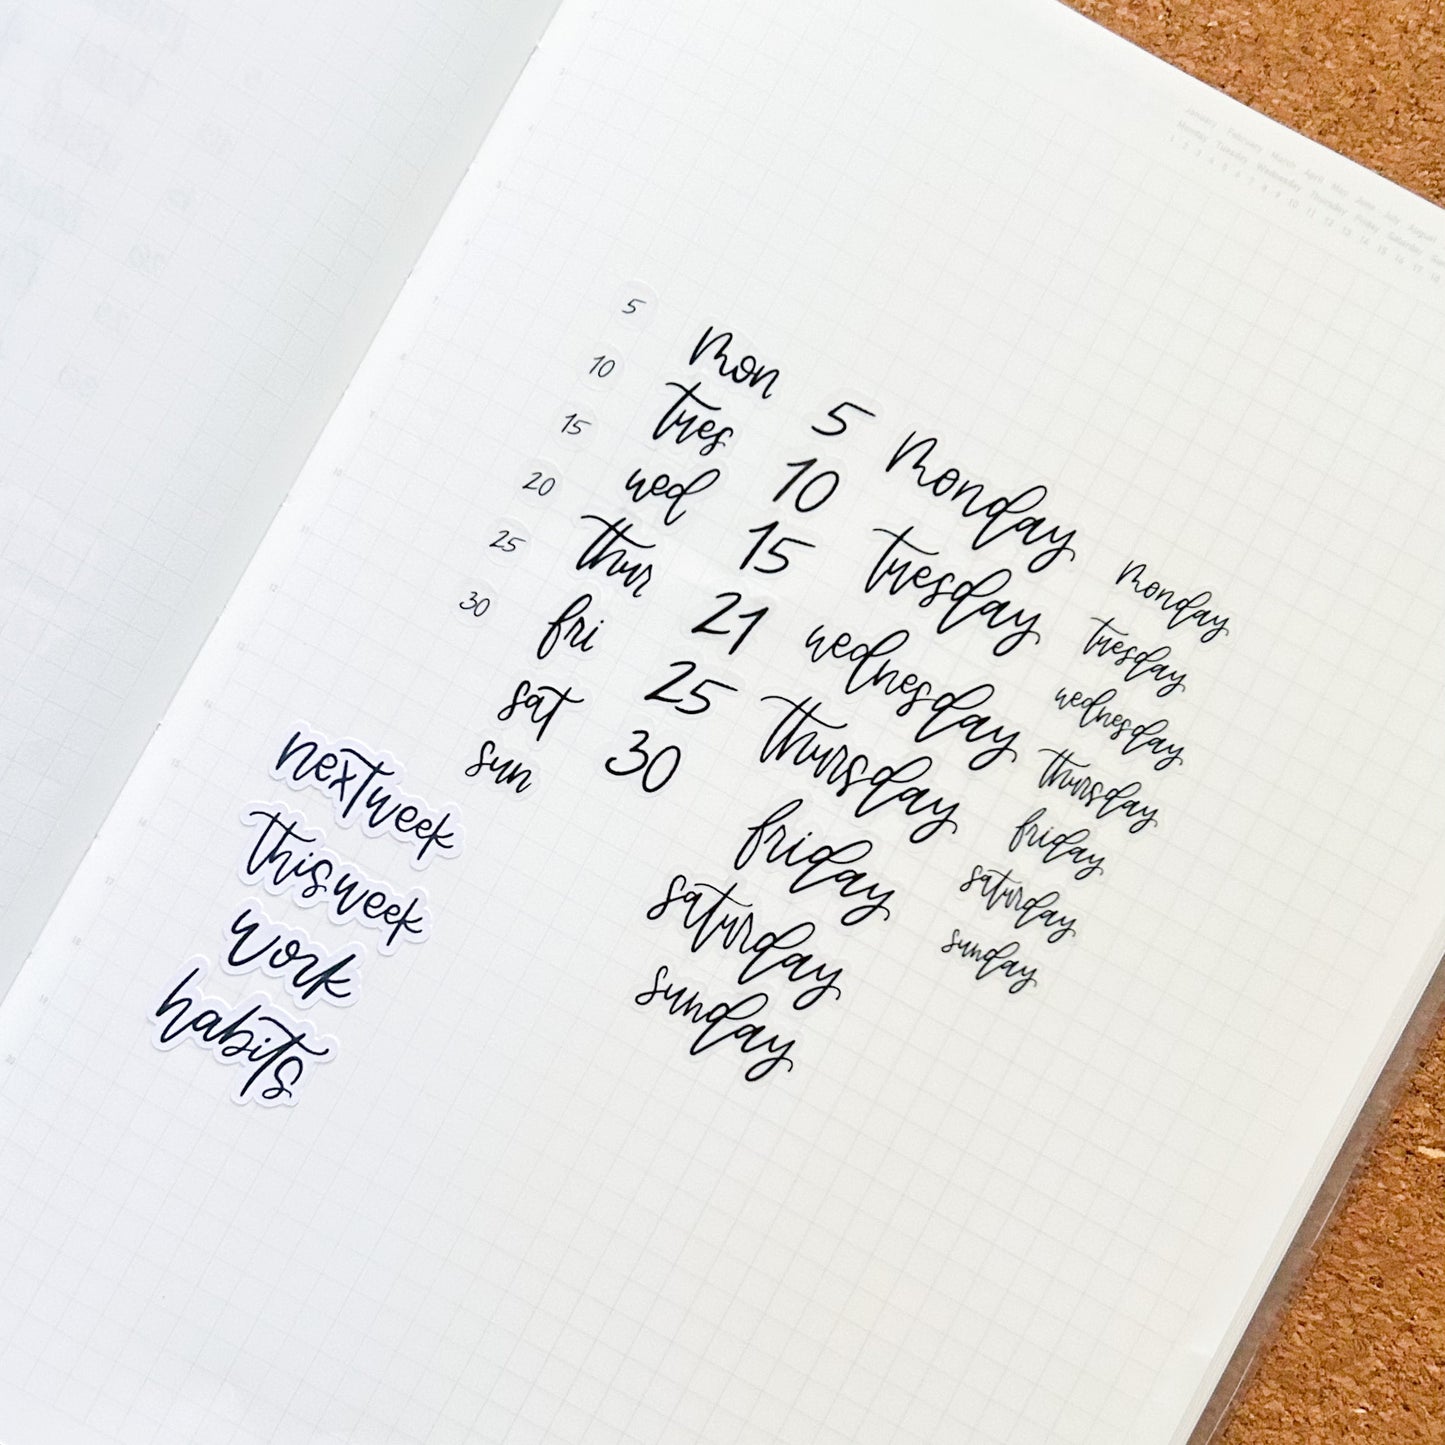 January February March April May June July August
Monday Tuesday Wednesday Thursday Friday Saturday
1 2 3 4 5 6 7 8 9 10 11 12 13 14 15 16 17 18
5
10
15
20
25
30
mon
tues
wed
thur
fri
sat
sun
5
10
15
21
25
30
monday
tuesday
wednesday
thursday
friday
saturday
sunday
monday
tuesday
wednesday
thursday
friday
saturday
sunday
next week
this week
work
habits